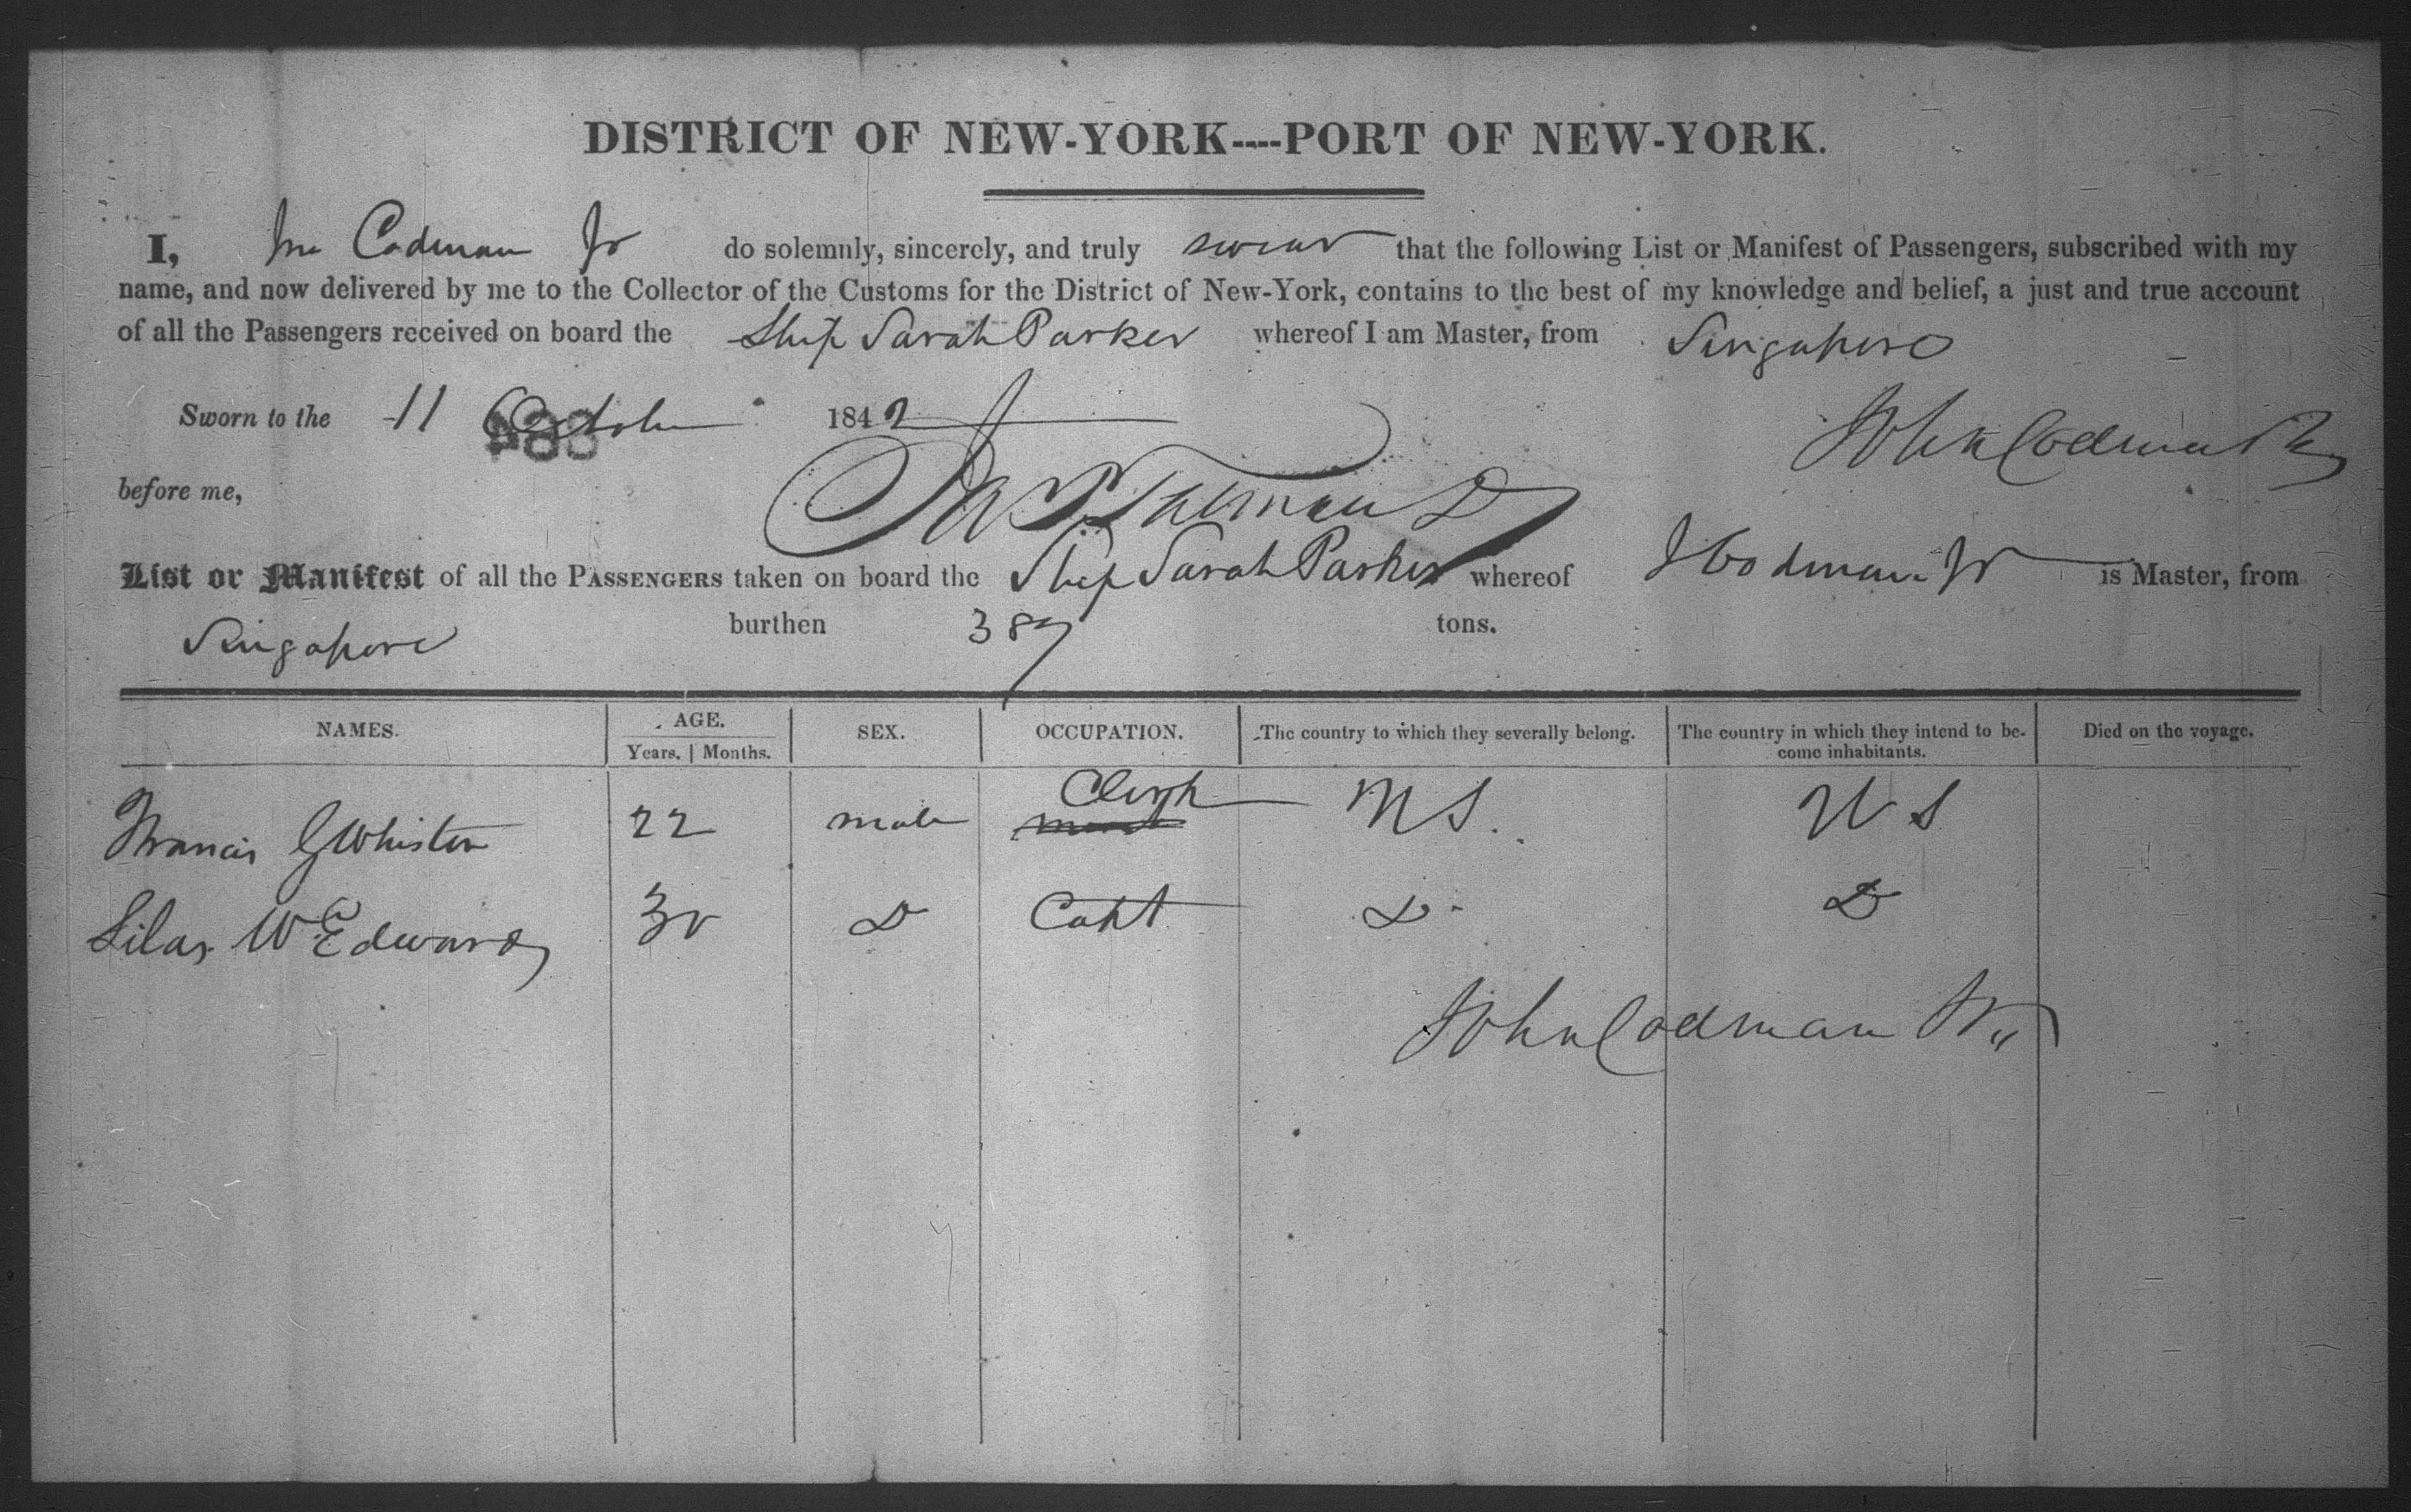 DISTRICT OF NEW-YORK----PORT OF NEW-YORK.
I, Jno Codman Jr do solemnly, sincerely, and truly swear that the following List or Manifest of Passengers, subscribed with my
name, and now delivered by me to the Collector of the Customs for the District of New-York, contains to the best of my knowledge and belief, a just and true account
of all the Passengers received on board the Ship Sarah Parker whereof I am Master, from Singapore
Sworn to the 11 October 1842
John Codman Jr
before me,
List or Manifest of all the PASSENGERS taken on board the Ship Sarah Parker whereof J Codman Jr is Master, from
Singapore burthen 387 tons.
NAMES. AGE. SEX. OCCUPATION. The country to which they severally belong. The country in which they intend to be- Died on the voyage.
Years. | Months. come inhabitants.
Francis G Whiston 22 male Clerk U S. U S
Silas W Edwards 30 D Capt D D
John Codman Jr